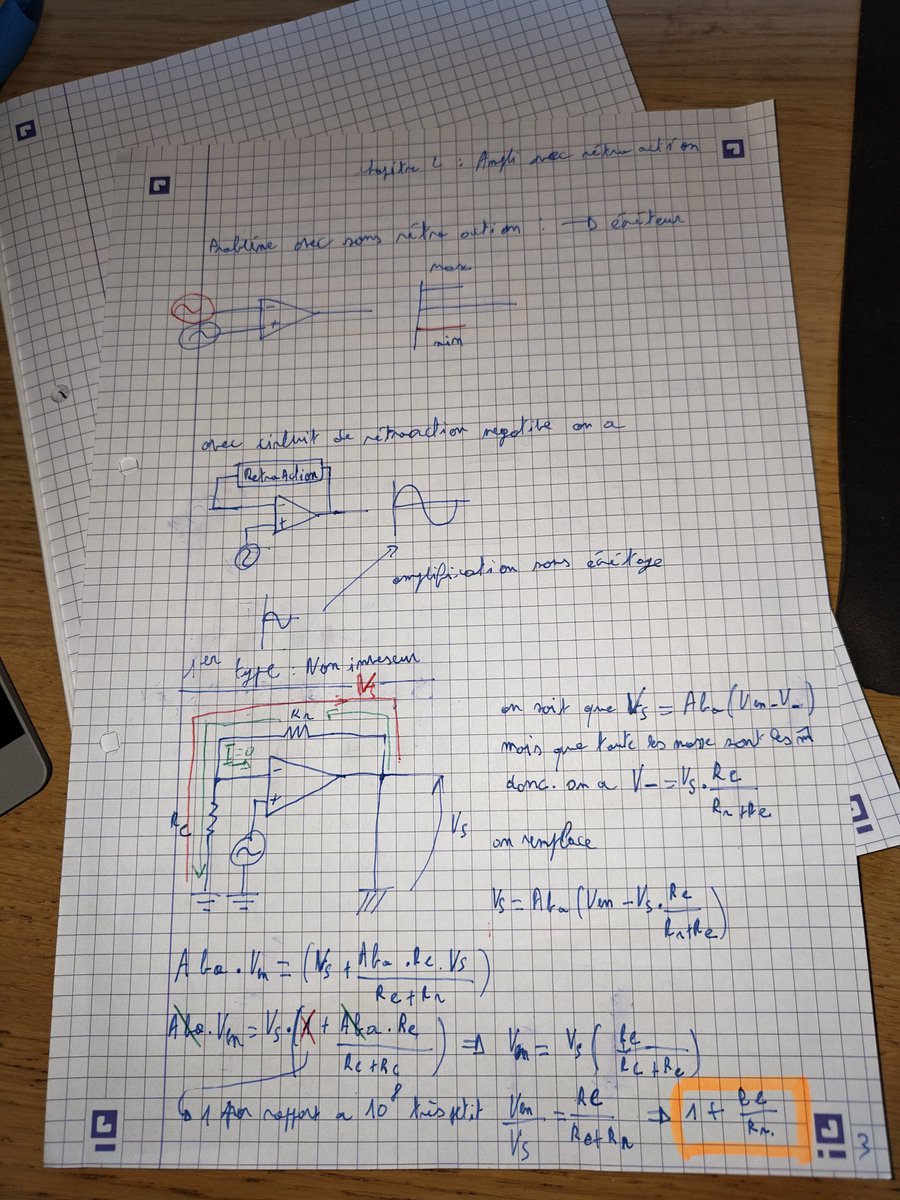 Chapitre 2 : Ampli avec rétroaction
Problème avec sans rétro action : → écréteur
max
- +
min
avec circuit de rétroaction negative on a
RetroAction
- +
amplification sans écrétage
1er type : Non inverseur
Vs
Rr
I=0
- +
Rc
Vs
on sait que Vs = Abo (Ven - V-)
mais que toute les masse sont les m̄
donc. on a V- = Vs . Re / Rr + Re
on remplace
Vs = Abo (Ven - Vs . Re / Rr + Re)
Abo . Ven = (Vs + Abo . Rc . Vs / Rc + Rr)
Abo . Ven = Vs . (1 + Abo . Re / Rc + Rc) ⇒ Ven = Vs ( Re / Rc + Re )
↳ 1 par rapport a 10^8 très petit Ven / Vs = Re / Re + Rr ⇒ 1 + Re / Rr.
3